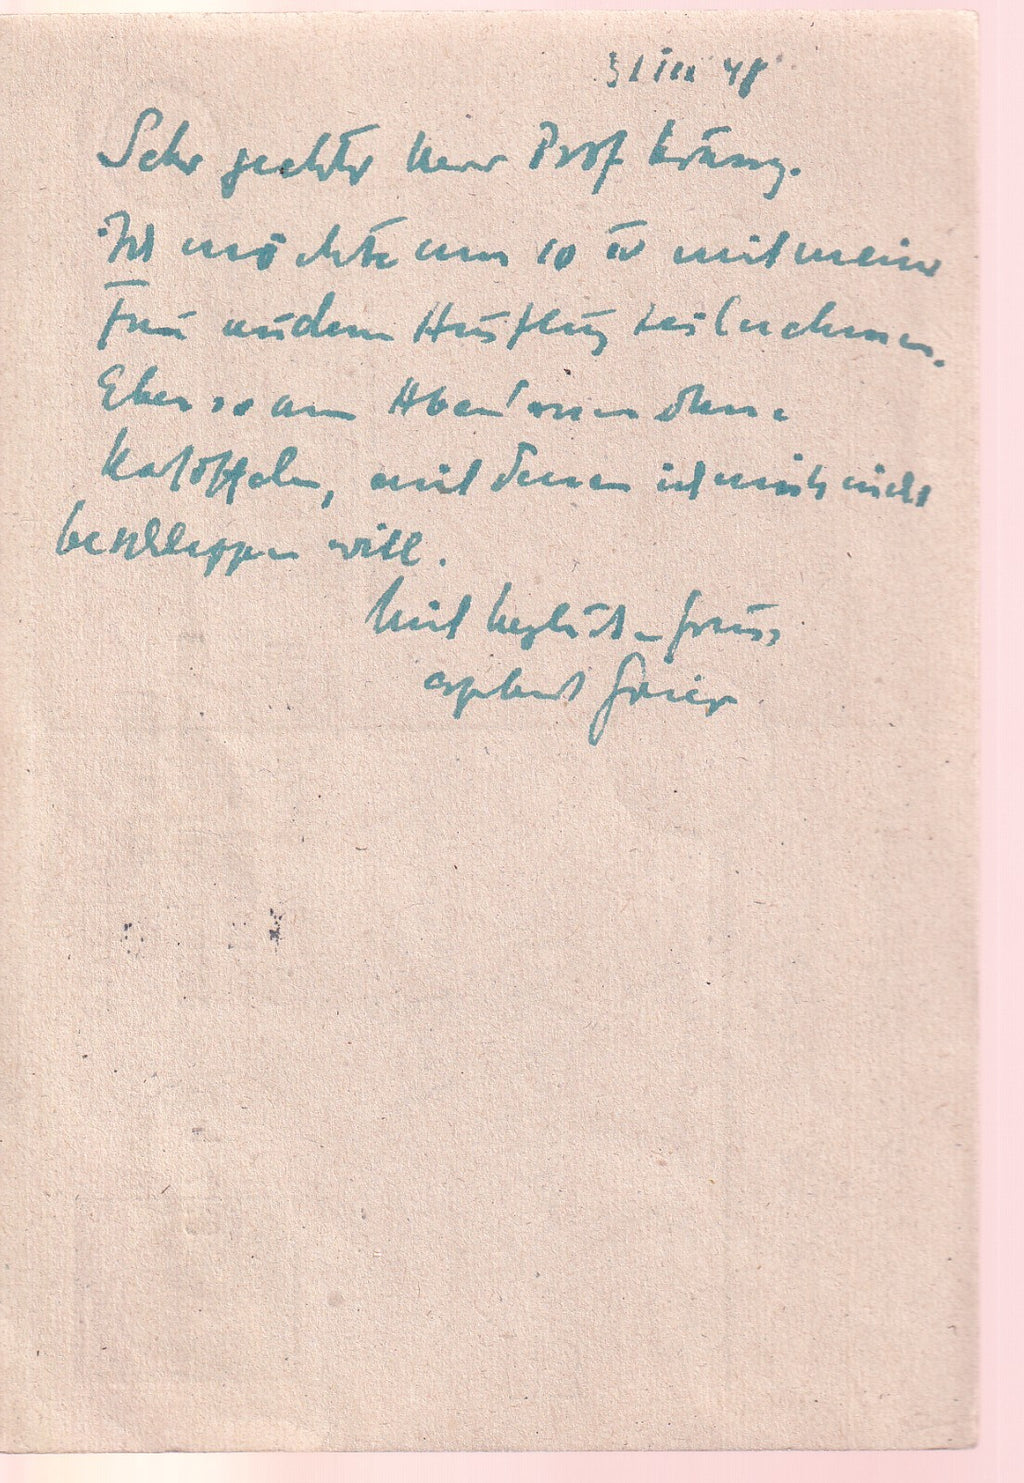 31 III 48
Sehr geehrter Herr Prof
Ich möchte am 10 IV mit meiner
Frau an dem Ausflug teilnehmen.
Ebenso am Abendessen ohne
Kartoffeln, mit denen ich mich nicht
beschleppen will.
Mit herzlichen Gruss